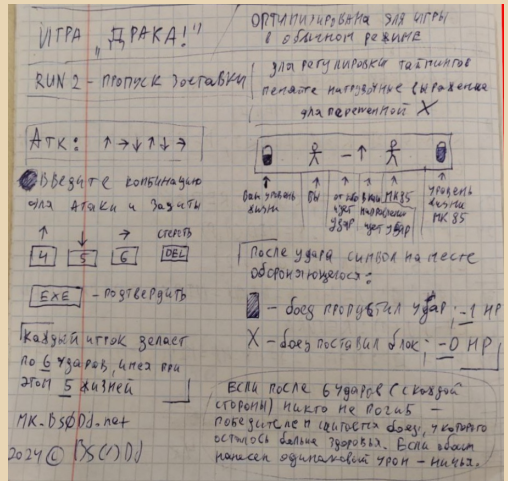 ИГРА „ДРАКА!"
RUN 2 – ПРОПУСК ЗАСТАВКИ
АТК: ↑ → ↓ ↑ ↓ →
Введите комбинацию
для Атаки и Защиты
↑ ↓ → СТЕРЕТЬ
4 5 6 DEL
EXE – подтвердить
Каждый игрок делает
по 6 ударов, имея при
этом 5 жизней
MK-BSØDd.net
2024 © BS(1)Dd
ОПТИМИЗИРОВАНА ДЛЯ ИГРЫ
в обычном режиме
для регулировки таймингов
меняйте нагрузочные выражения
для переменной X
– ↑
Ваш уровень жизни
Вы
от кого идет удар
направление
МК85
уровень жизни МК 85
После удара символ на месте
обороняющегося:
– боец пропустил удар: –1 HP
X – боец поставил блок: –0 HP
Если после 6 ударов (с каждой
стороны) никто не погиб –
победителем считается боец, у которого
осталось больше здоровья. Если обоим
нанесен одинаковый урон – ничья.